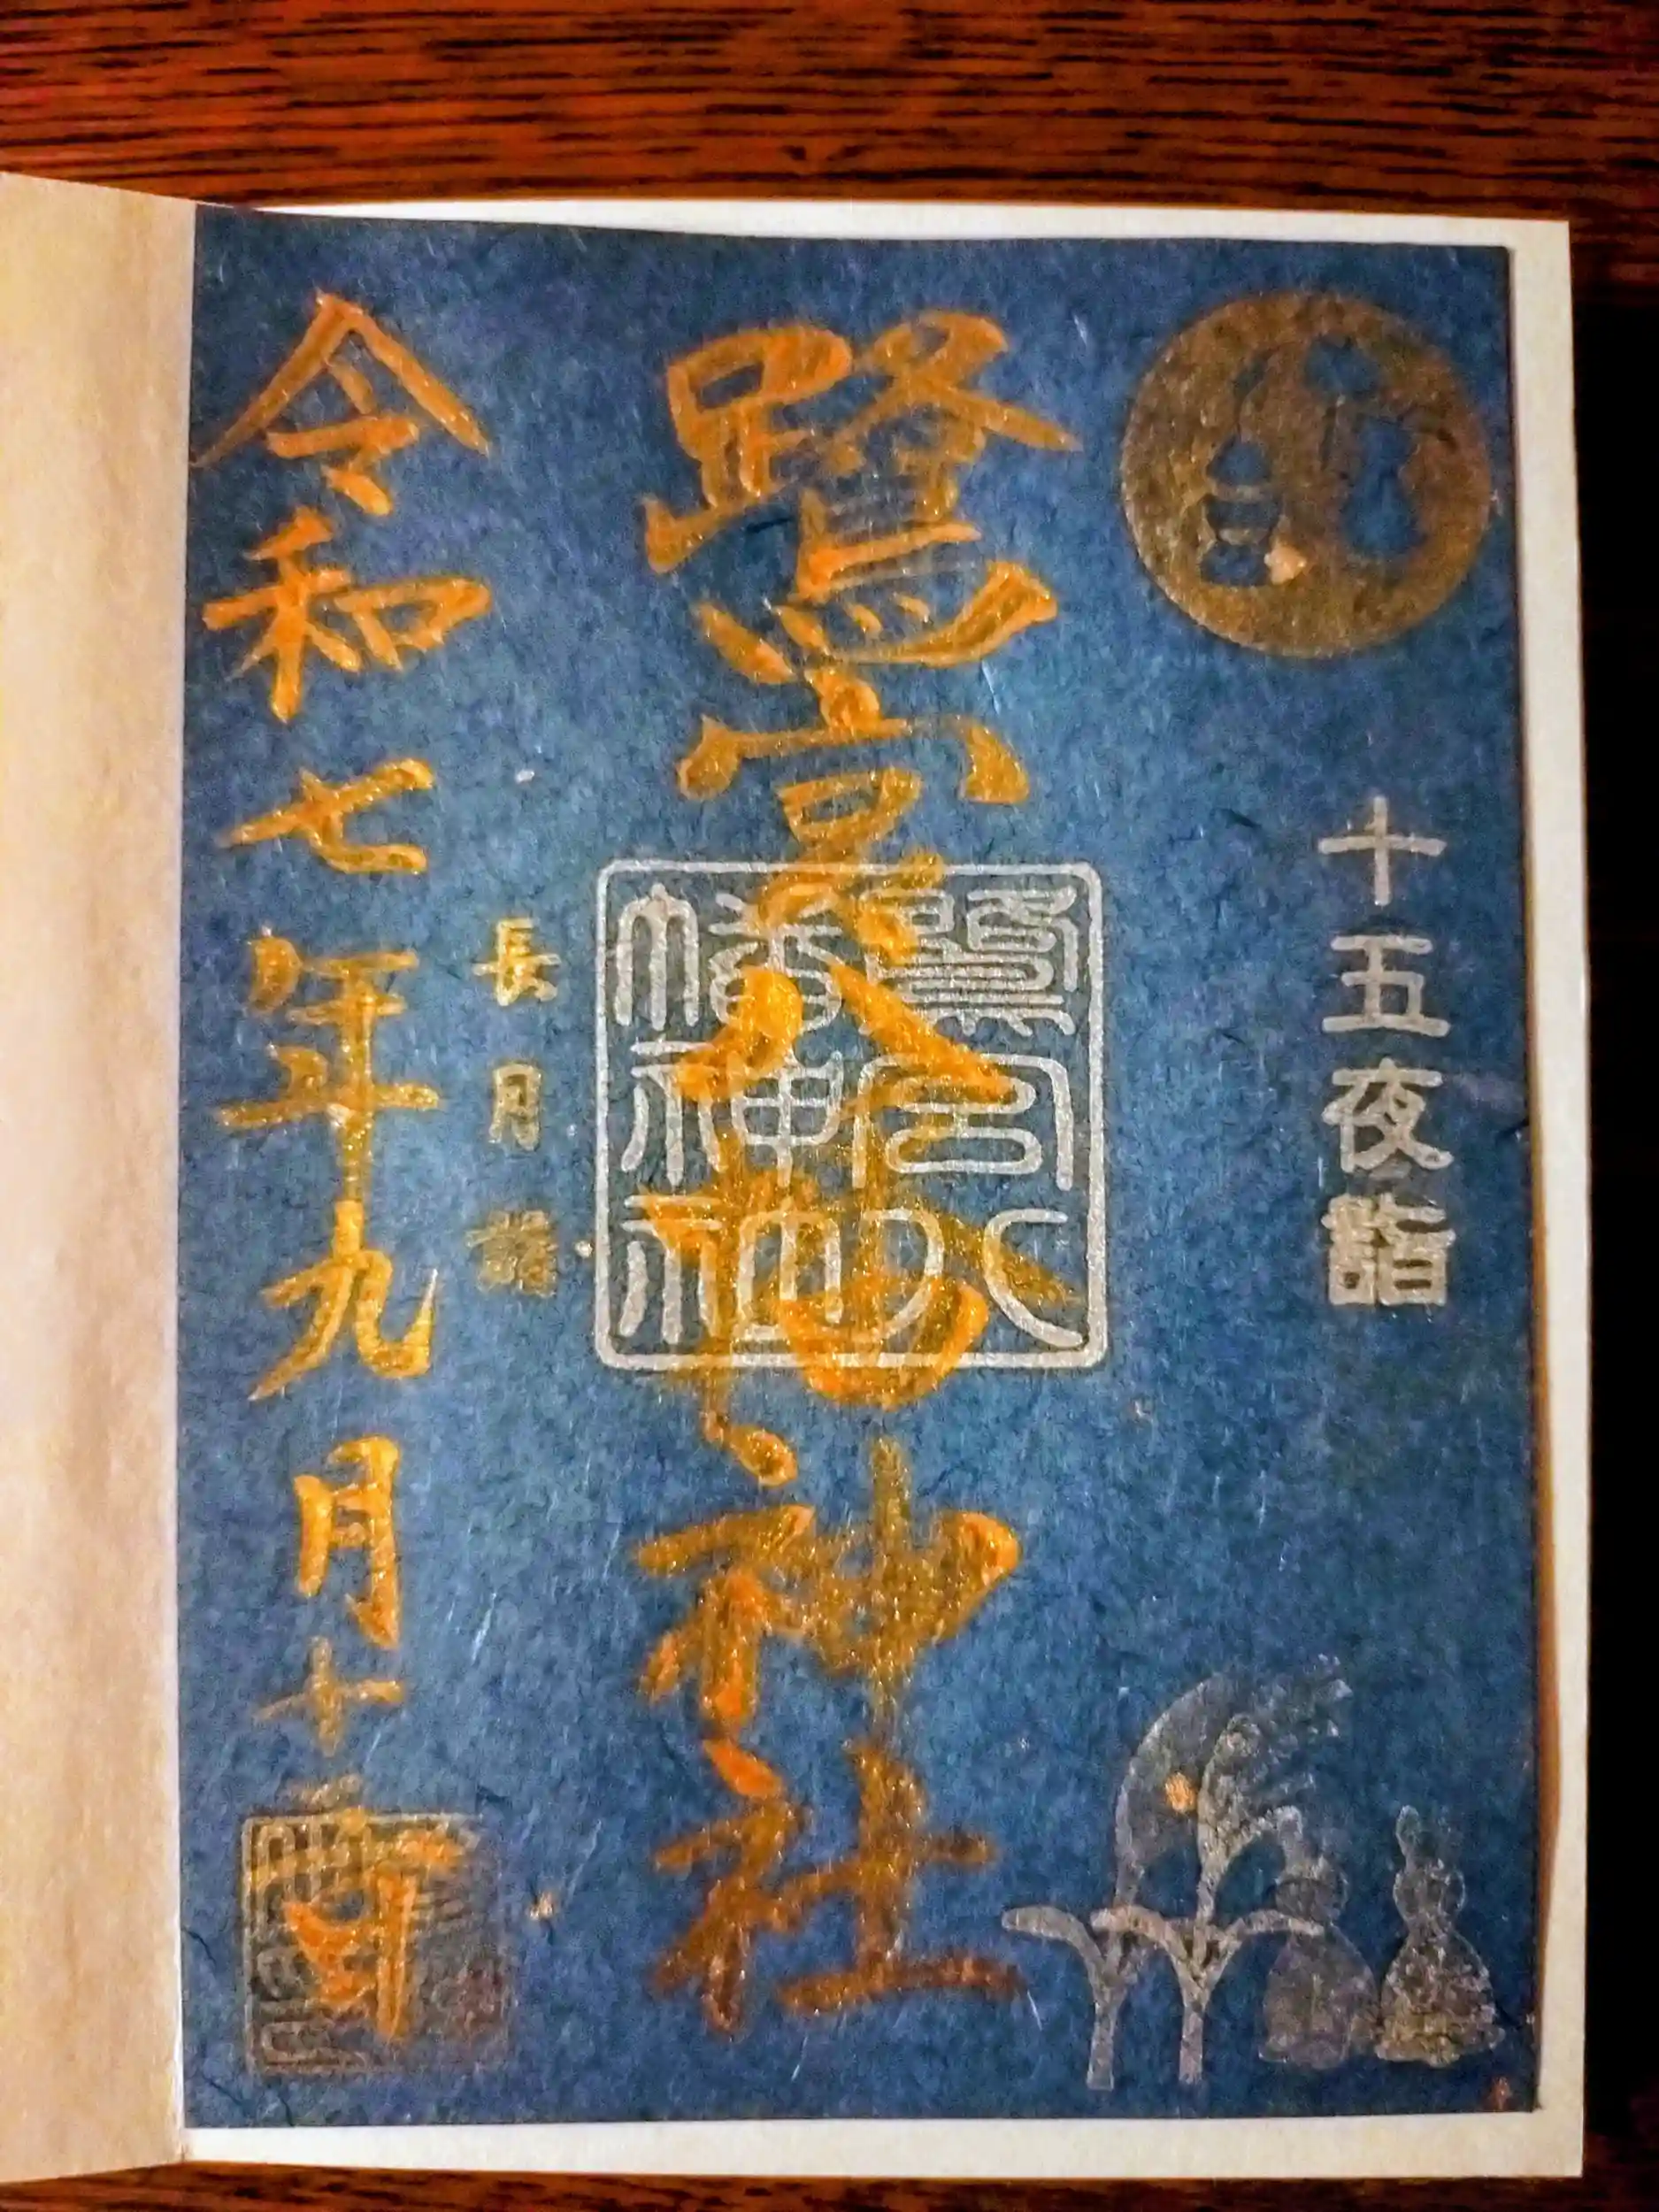 十五夜詣
鷺宮八幡神社
鷺宮八
幡神
長月詣
令和七年九月十 日